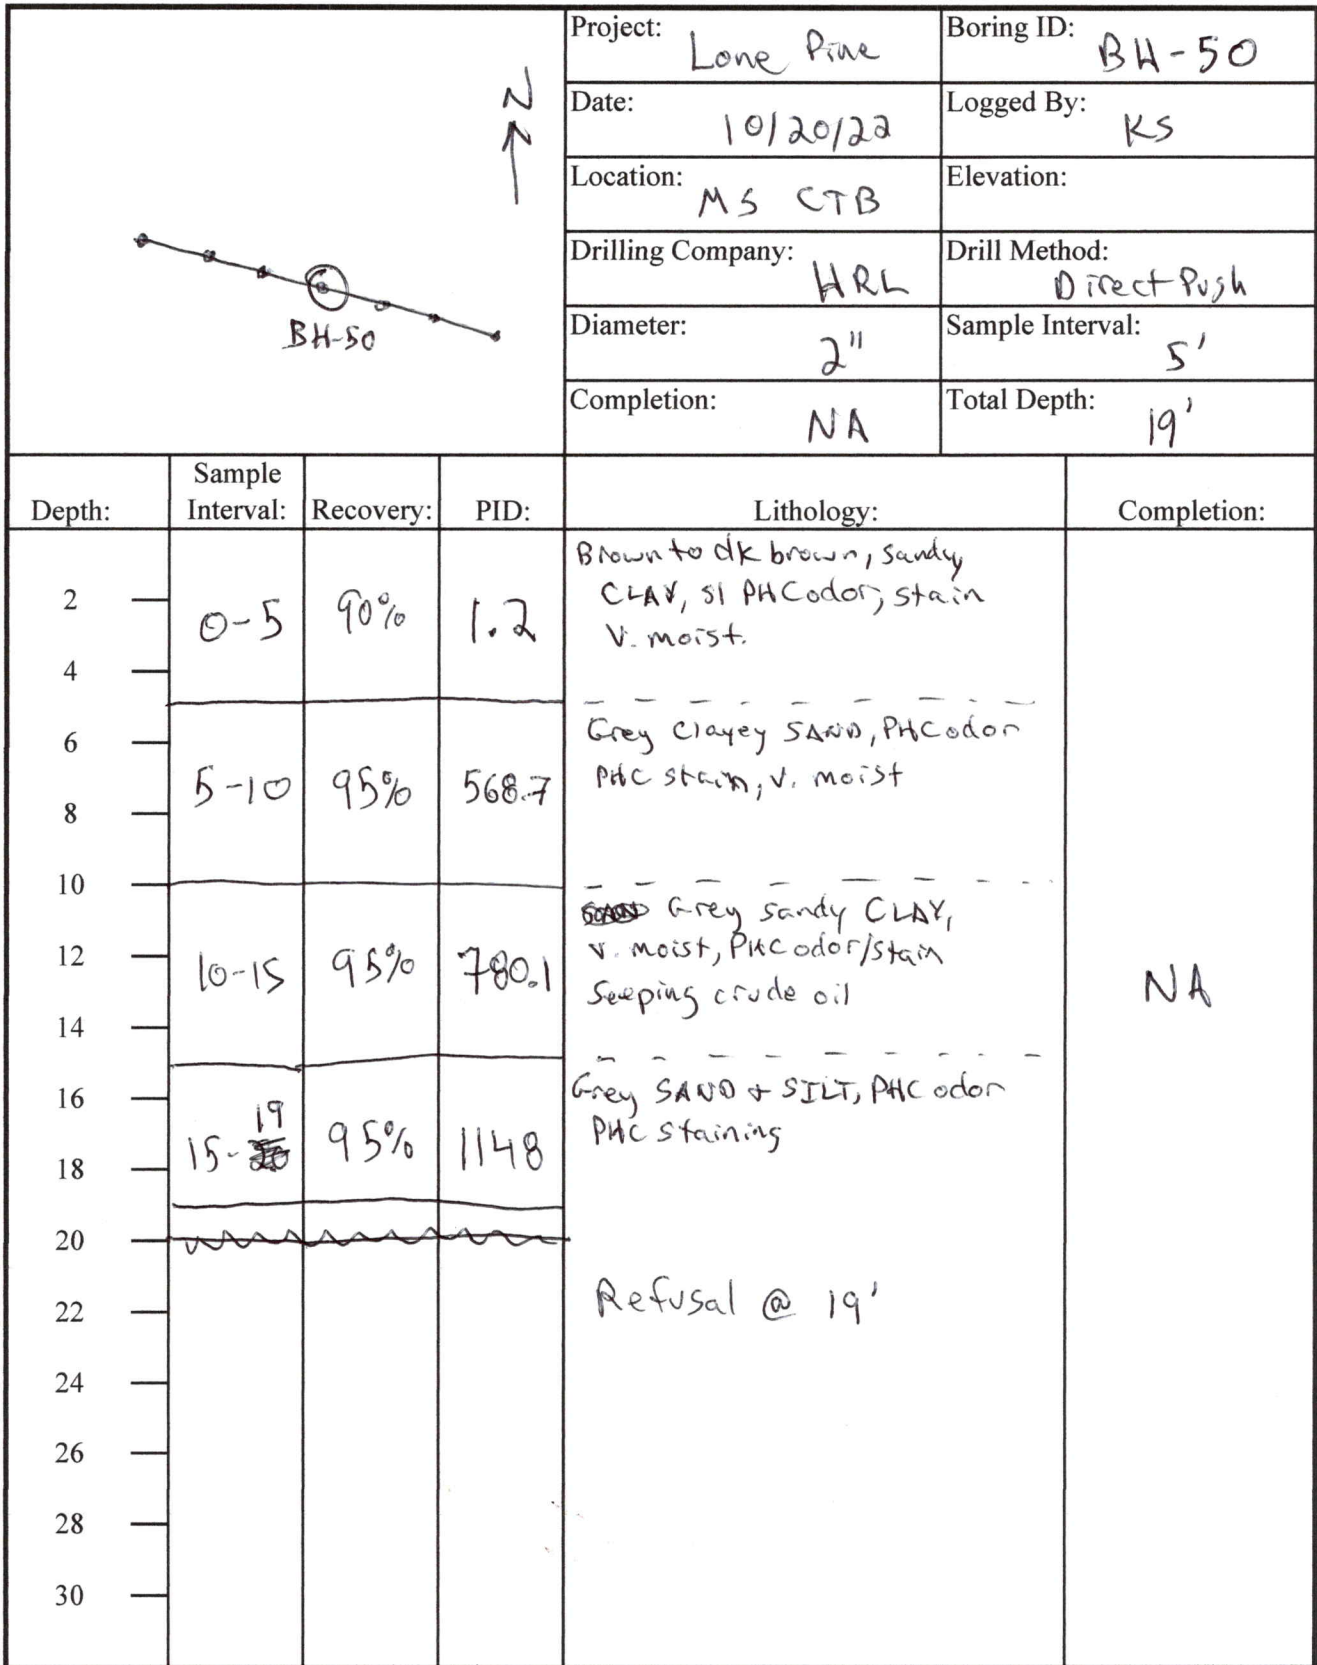 N
BH-50
Project: Lone Pine
Boring ID: BH-50
Date: 10/20/22
Logged By: KS
Location: MS CTB
Elevation:
Drilling Company: HRL
Drill Method: Direct Push
Diameter: 2"
Sample Interval: 5'
Completion: NA
Total Depth: 19'
Depth:
Sample
Interval:
Recovery:
PID:
Lithology:
Completion:
2
4
6
8
10
12
14
16
18
20
22
24
26
28
30
0-5 90% 1.2
Brown to dk brown, sandy
CLAY, sl PHC odor, stain
V. moist.
5-10 95% 568.7
Grey Clayey SAND, PHC odor
PHC stain, v. moist
10-15 95% 780.1
Grey sandy CLAY,
v. moist, PHC odor/stain
Seeping crude oil
NA
15-19 95% 1148
Grey SAND + SILT, PHC odor
PHC staining
Refusal @ 19'